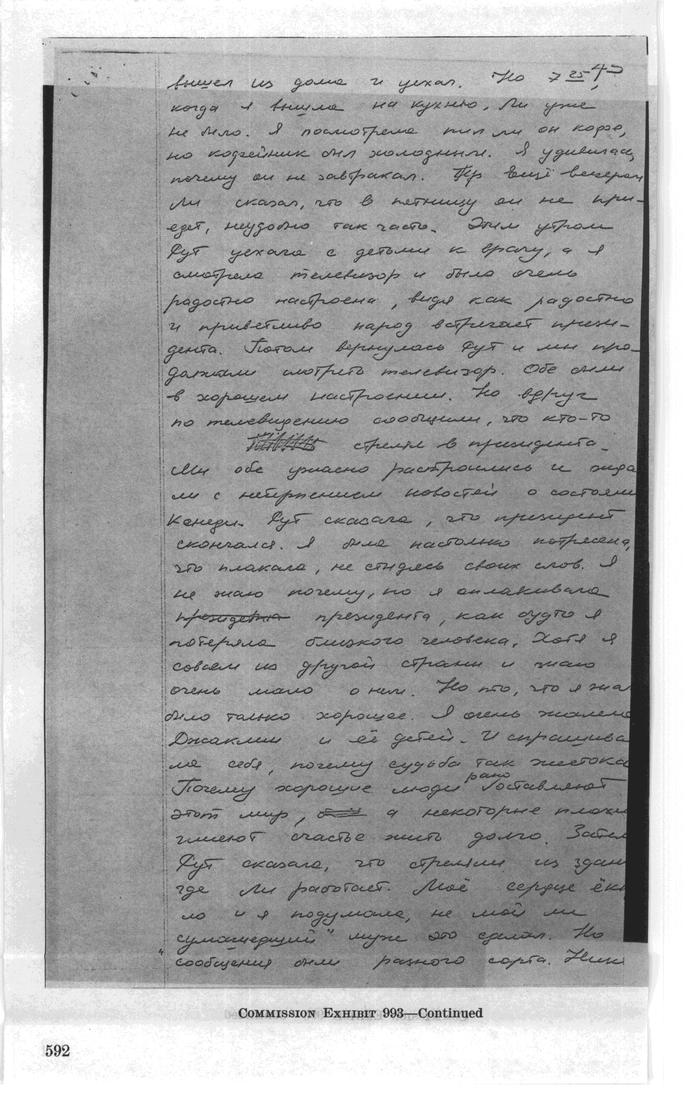 вышел из дома и уехал. Но 7 25
когда я вышла на кухню, Ли уже
не было. Я посмотрела пил ли он кофе,
но кофейник был холодным. Я удивилась,
почему он не завтракал. ещё вечером
Ли сказал, что в пятницу он не при-
едет, неудобно так часто. Этим утром
Рут уехала с детьми к врачу, а я
смотрела телевизор и была очень
радостно настроена, видя как радостно
и приветливо народ встричает прези-
дента. Потом вернулась Рут и мы про-
должали смотреть телевизор. Обе были
в хорошем настроении. Но вдруг
по телевидению сообщили, что кто-то
стрелял в президента.
Мы обе ужасно растроились и жда
ли с нетерпением новостей о состояни
Кенеди. Рут сказала, что президент
скончался. Я была настолько потресена,
что плакала, не стыдясь своих слов. Я
не знаю почему, но я оплакивала
президента президента, как будто я
потеряла близкого человека, Хотя я
совсем из другой страны и знаю
очень мало о нем. Но то, что я зна
было только хорошее. Я очень жалела
Джаклин и её детей. И спрашива
ла себя, почему судьба так жестока
Почему хорошие люди рано оставляют
этот мир, а некоторые плохи
имеют счастье жить долго. Затем
Рут сказала, что стреляли из здан
где Ли работает. Моё сердце ёкн
ло и я подумала, не мой ли
"сумашедший" муж это сделал. Но
сообщения были разного сорта. Ник
COMMISSION EXHIBIT 993—Continued
592